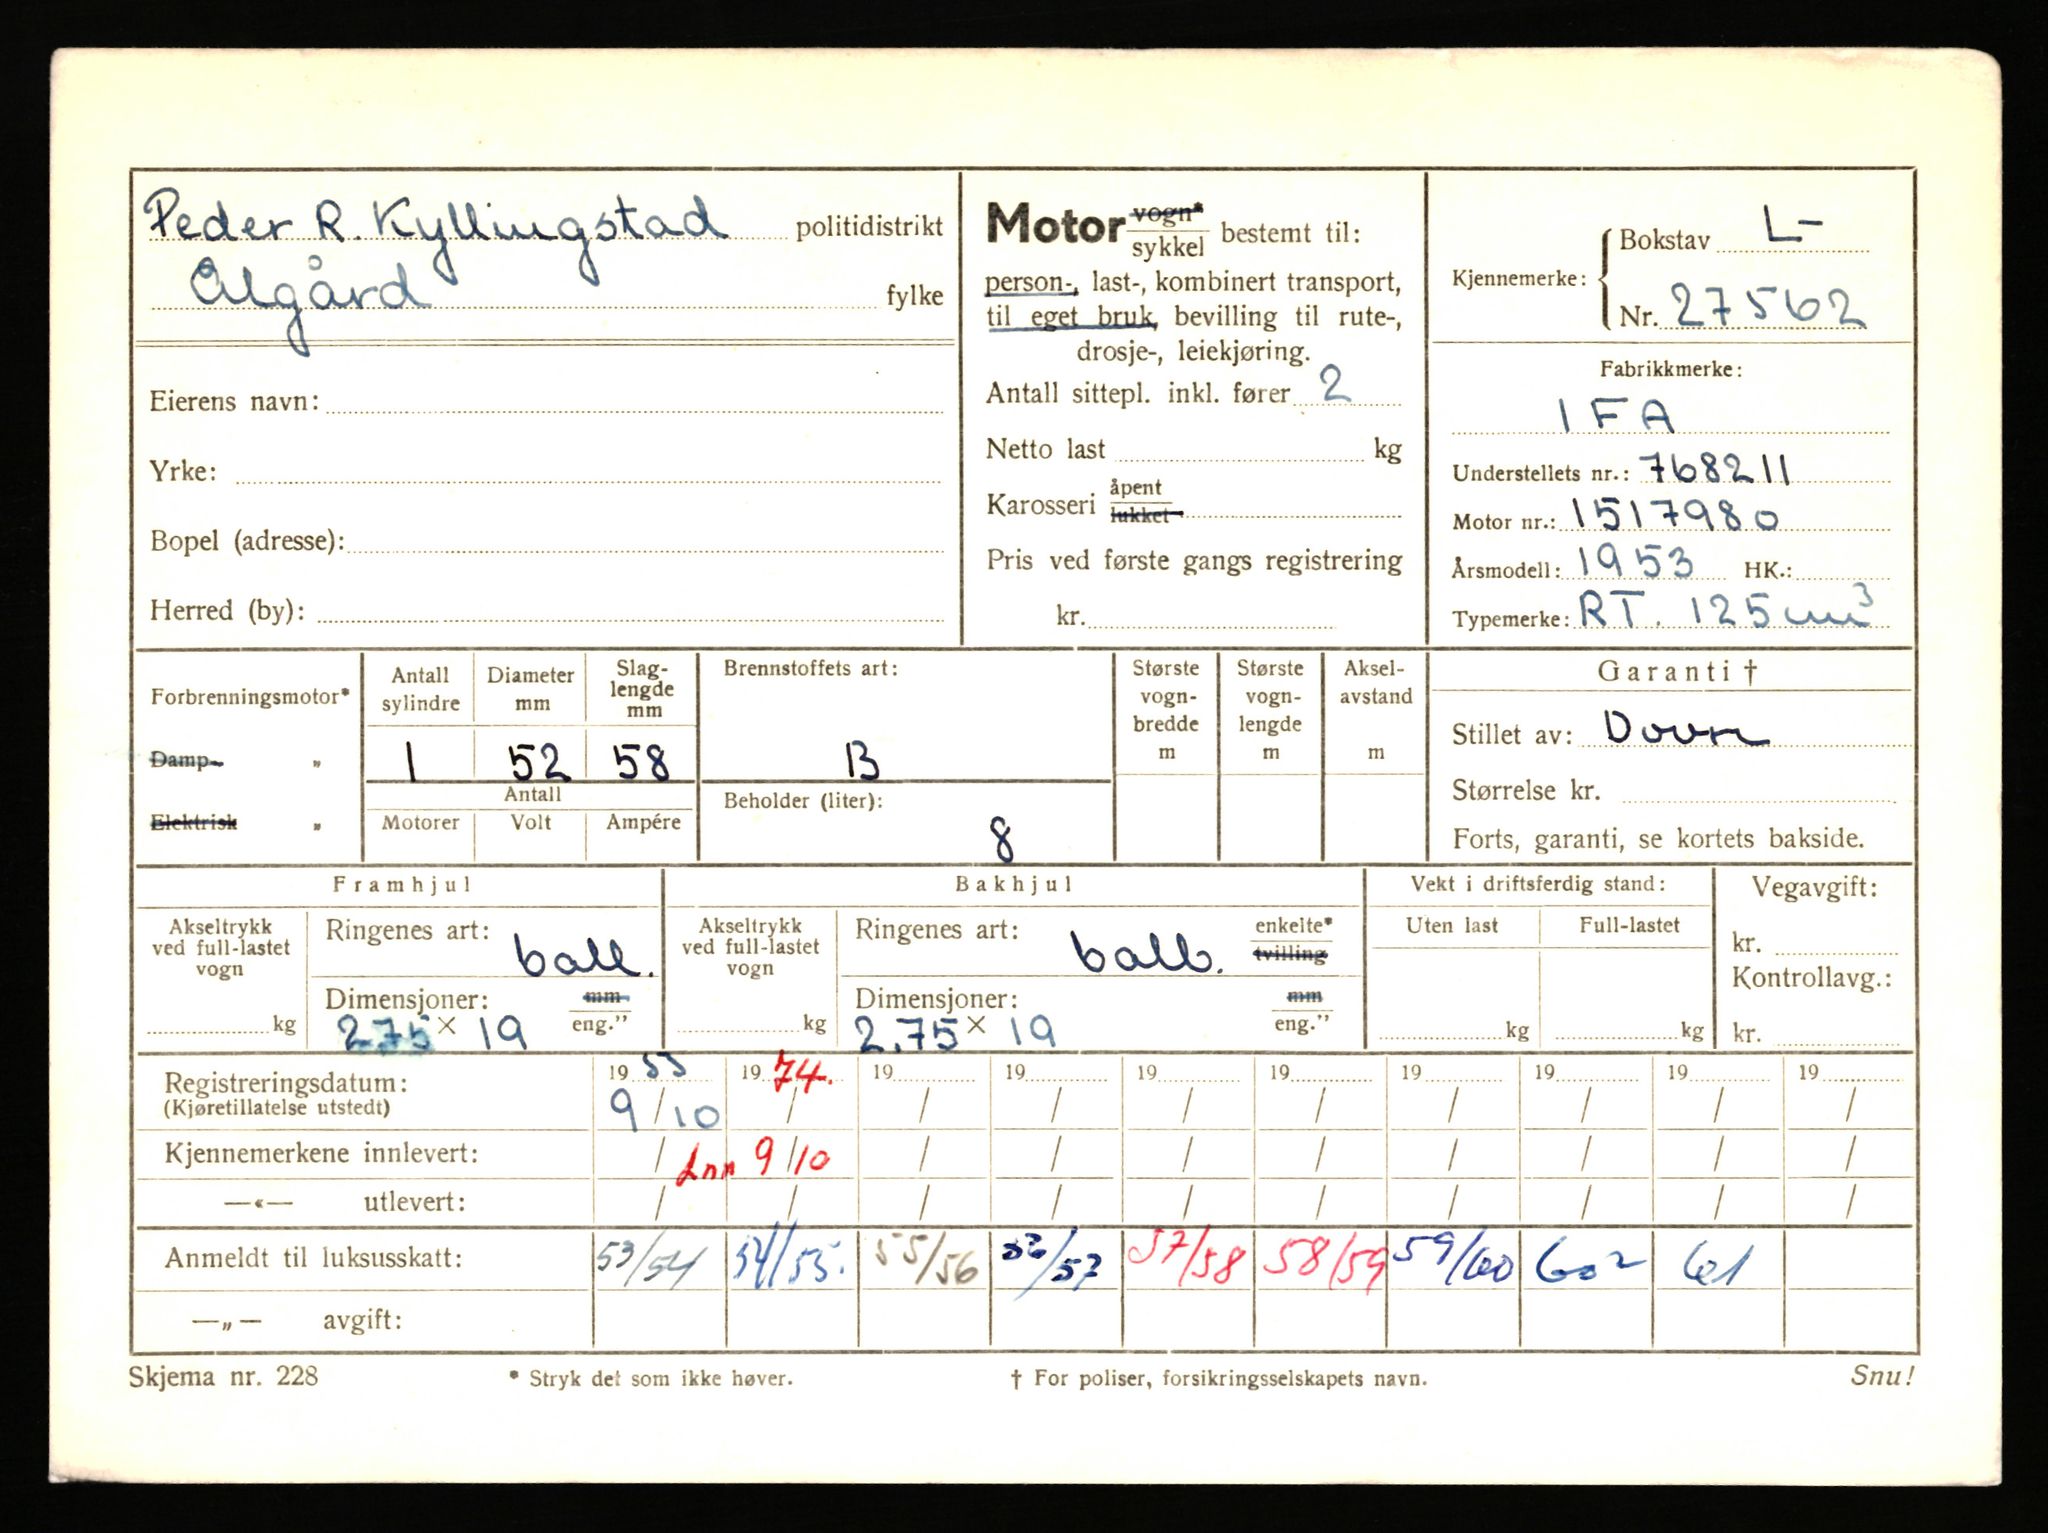 Peder R. Kyllingstad politidistrikt
Ålgård fylke
Eierens navn:
Yrke:
Bopel (adresse):
Herred (by):
Motor vogn* sykkel bestemt til:
person-, last-, kombinert transport,
til eget bruk, bevilling til rute-,
drosje-, leiekjøring.
Antall sittepl. inkl. fører 2
Netto last kg
Karosseri åpent lukket
Pris ved første gangs registrering
kr.
Kjennemerke: Bokstav L-
Nr. 27562
Fabrikkmerke:
IFA
Understellets nr.: 768211
Motor nr.: 1517980
Årsmodell: 1953 HK.:
Typemerke: RT. 125 cm³
Forbrenningsmotor*
Damp- „
Elektrisk „
Antall sylindre
Diameter mm
Slag-lengde mm
1 52 58
Antall
Motorer Volt Ampére
Brennstoffets art:
B
Beholder (liter):
8
Største vogn-bredde m
Største vogn-lengde m
Aksel-avstand m
Garanti †
Stillet av:
Størrelse kr.
Forts, garanti, se kortets bakside.
Framhjul
Akseltrykk ved full-lastet vogn
kg
Ringenes art: ball.
Dimensjoner: mm eng."
2.75 × 19
Bakhjul
Akseltrykk ved full-lastet vogn
kg
Ringenes art: ball. enkelte* tvilling
Dimensjoner: mm eng."
2.75 × 19
Vekt i driftsferdig stand:
Uten last Full-lastet
kg kg
Vegavgift:
kr.
Kontrollavg.:
kr.
Registreringsdatum: 1953 1974. 19 19 19 19 19 19 19 19
(Kjøretillatelse utstedt) 9/10 / / / / / / / / /
Kjennemerkene innlevert: / Inn 9/10 / / / / / / / /
—«— utlevert: / / / / / / / / / /
Anmeldt til luksusskatt: 53/54 54/55. 55/56 56/57 57/58 58/59 59/60 602 61
—„— avgift:
Skjema nr. 228 * Stryk det som ikke høver. † For poliser, forsikringsselskapets navn. Snu!